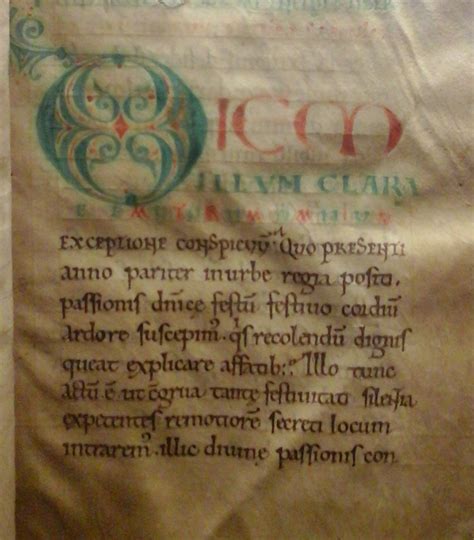 DIEM
ILLVM CLARA
EXCEPTIONE CONSPICUŪ· QUO PRESENTI
anno pariter in urbe regia positi.
passionis dnicę festū festiuo cordiū
ardore suscepim᷒. q̇s recolendū dignis
queat explicare affatib:? Illo tunc
actū ē ut c̄grua tantę festiuitati silentia
expetentes remotiorē secreti locum
intrarem᷒. illic diuinę passionis con